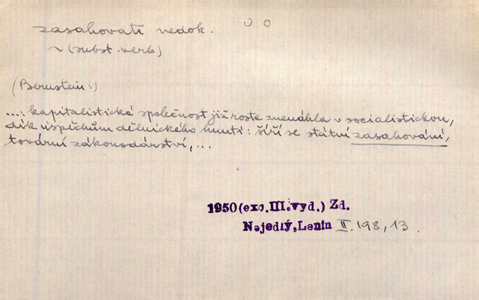 zasahovati nedok.
~ (subst. verb)
(Bernstein:)
...: kapitalistická společnost již roste znenáhla v socialistickou,
dík úspěchům dělnického hnutí: šíří se státní zasahování,
tovární zákonodárství, ...
1950 (exc. III. vyd.) Zd.
Nejedlý, Lenin II. 198, 13.